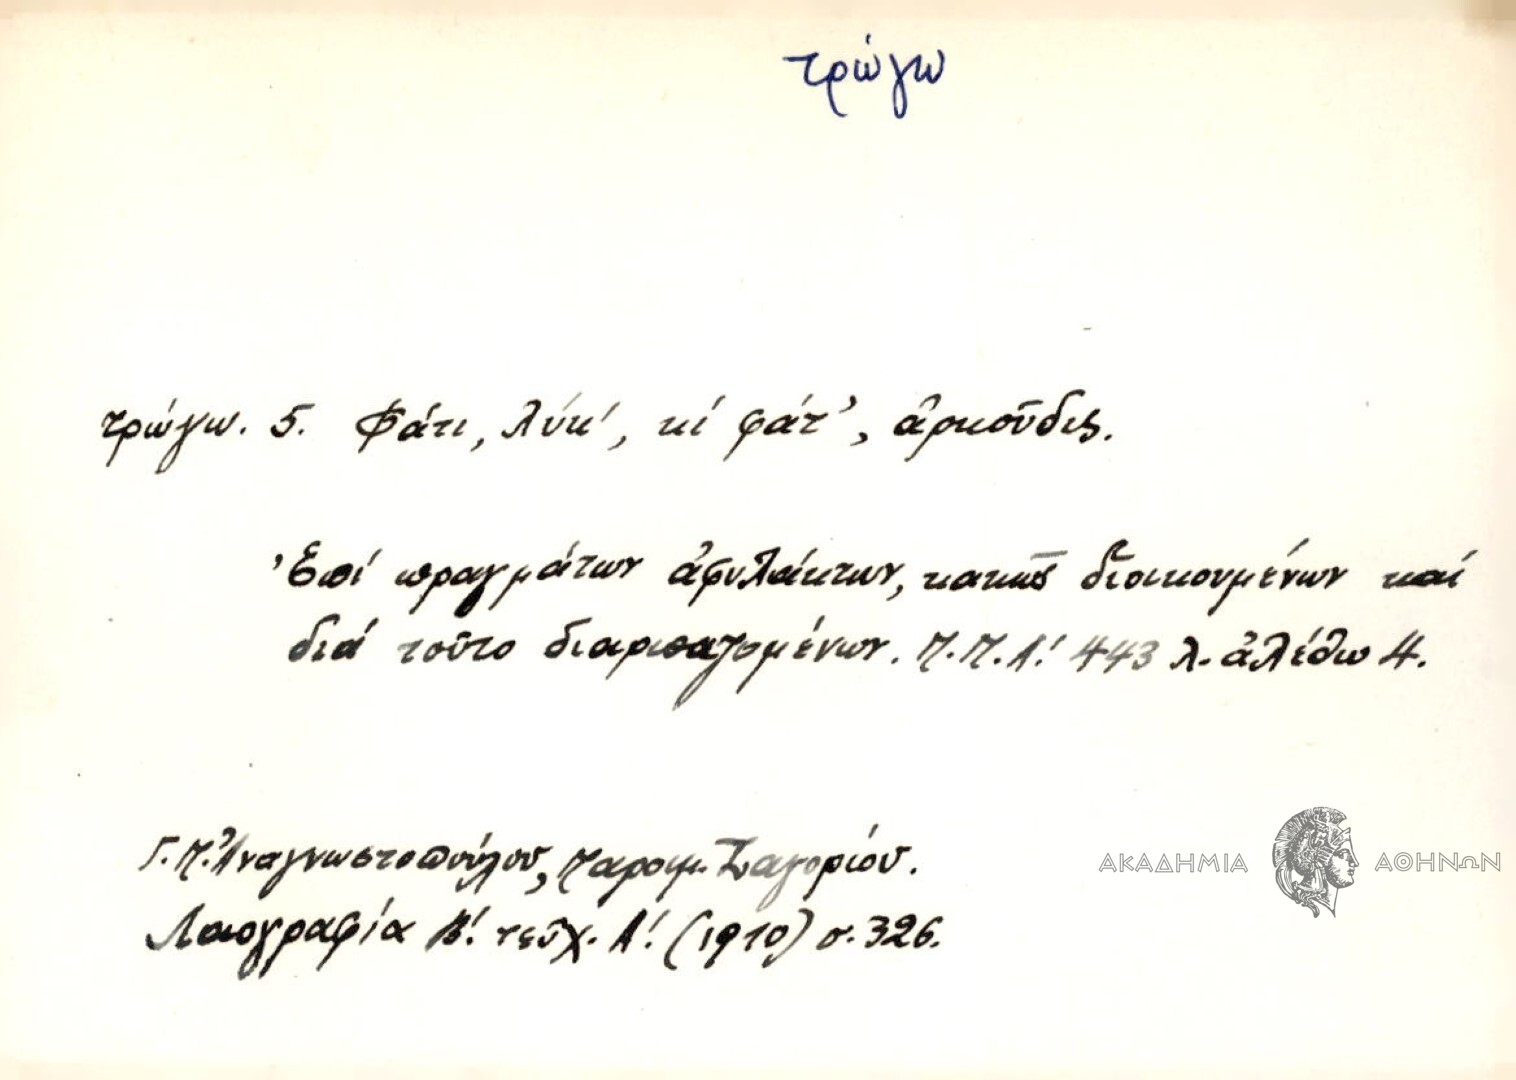 τρώγω
τρώγω. 5. Φάτι, λύκ', κί φάτ', ἀρκοῦδις.
Ἐπί πραγμάτων ἀφυλάκτων, κακῶς διοικουμένων καί
διά τοῦτο διαρπαζομένων. Π.Π.Α! 443 λ. ἀλέθω 4.
Γ. Π. Ἀναγνωστοπούλου, Παροιμ. Ζαγορίου.
Λαογραφία Β! τεῦχ. Α! (1910) σ. 326.
ΑΚΑΔΗΜΙΑ ΑΘΗΝΩΝ